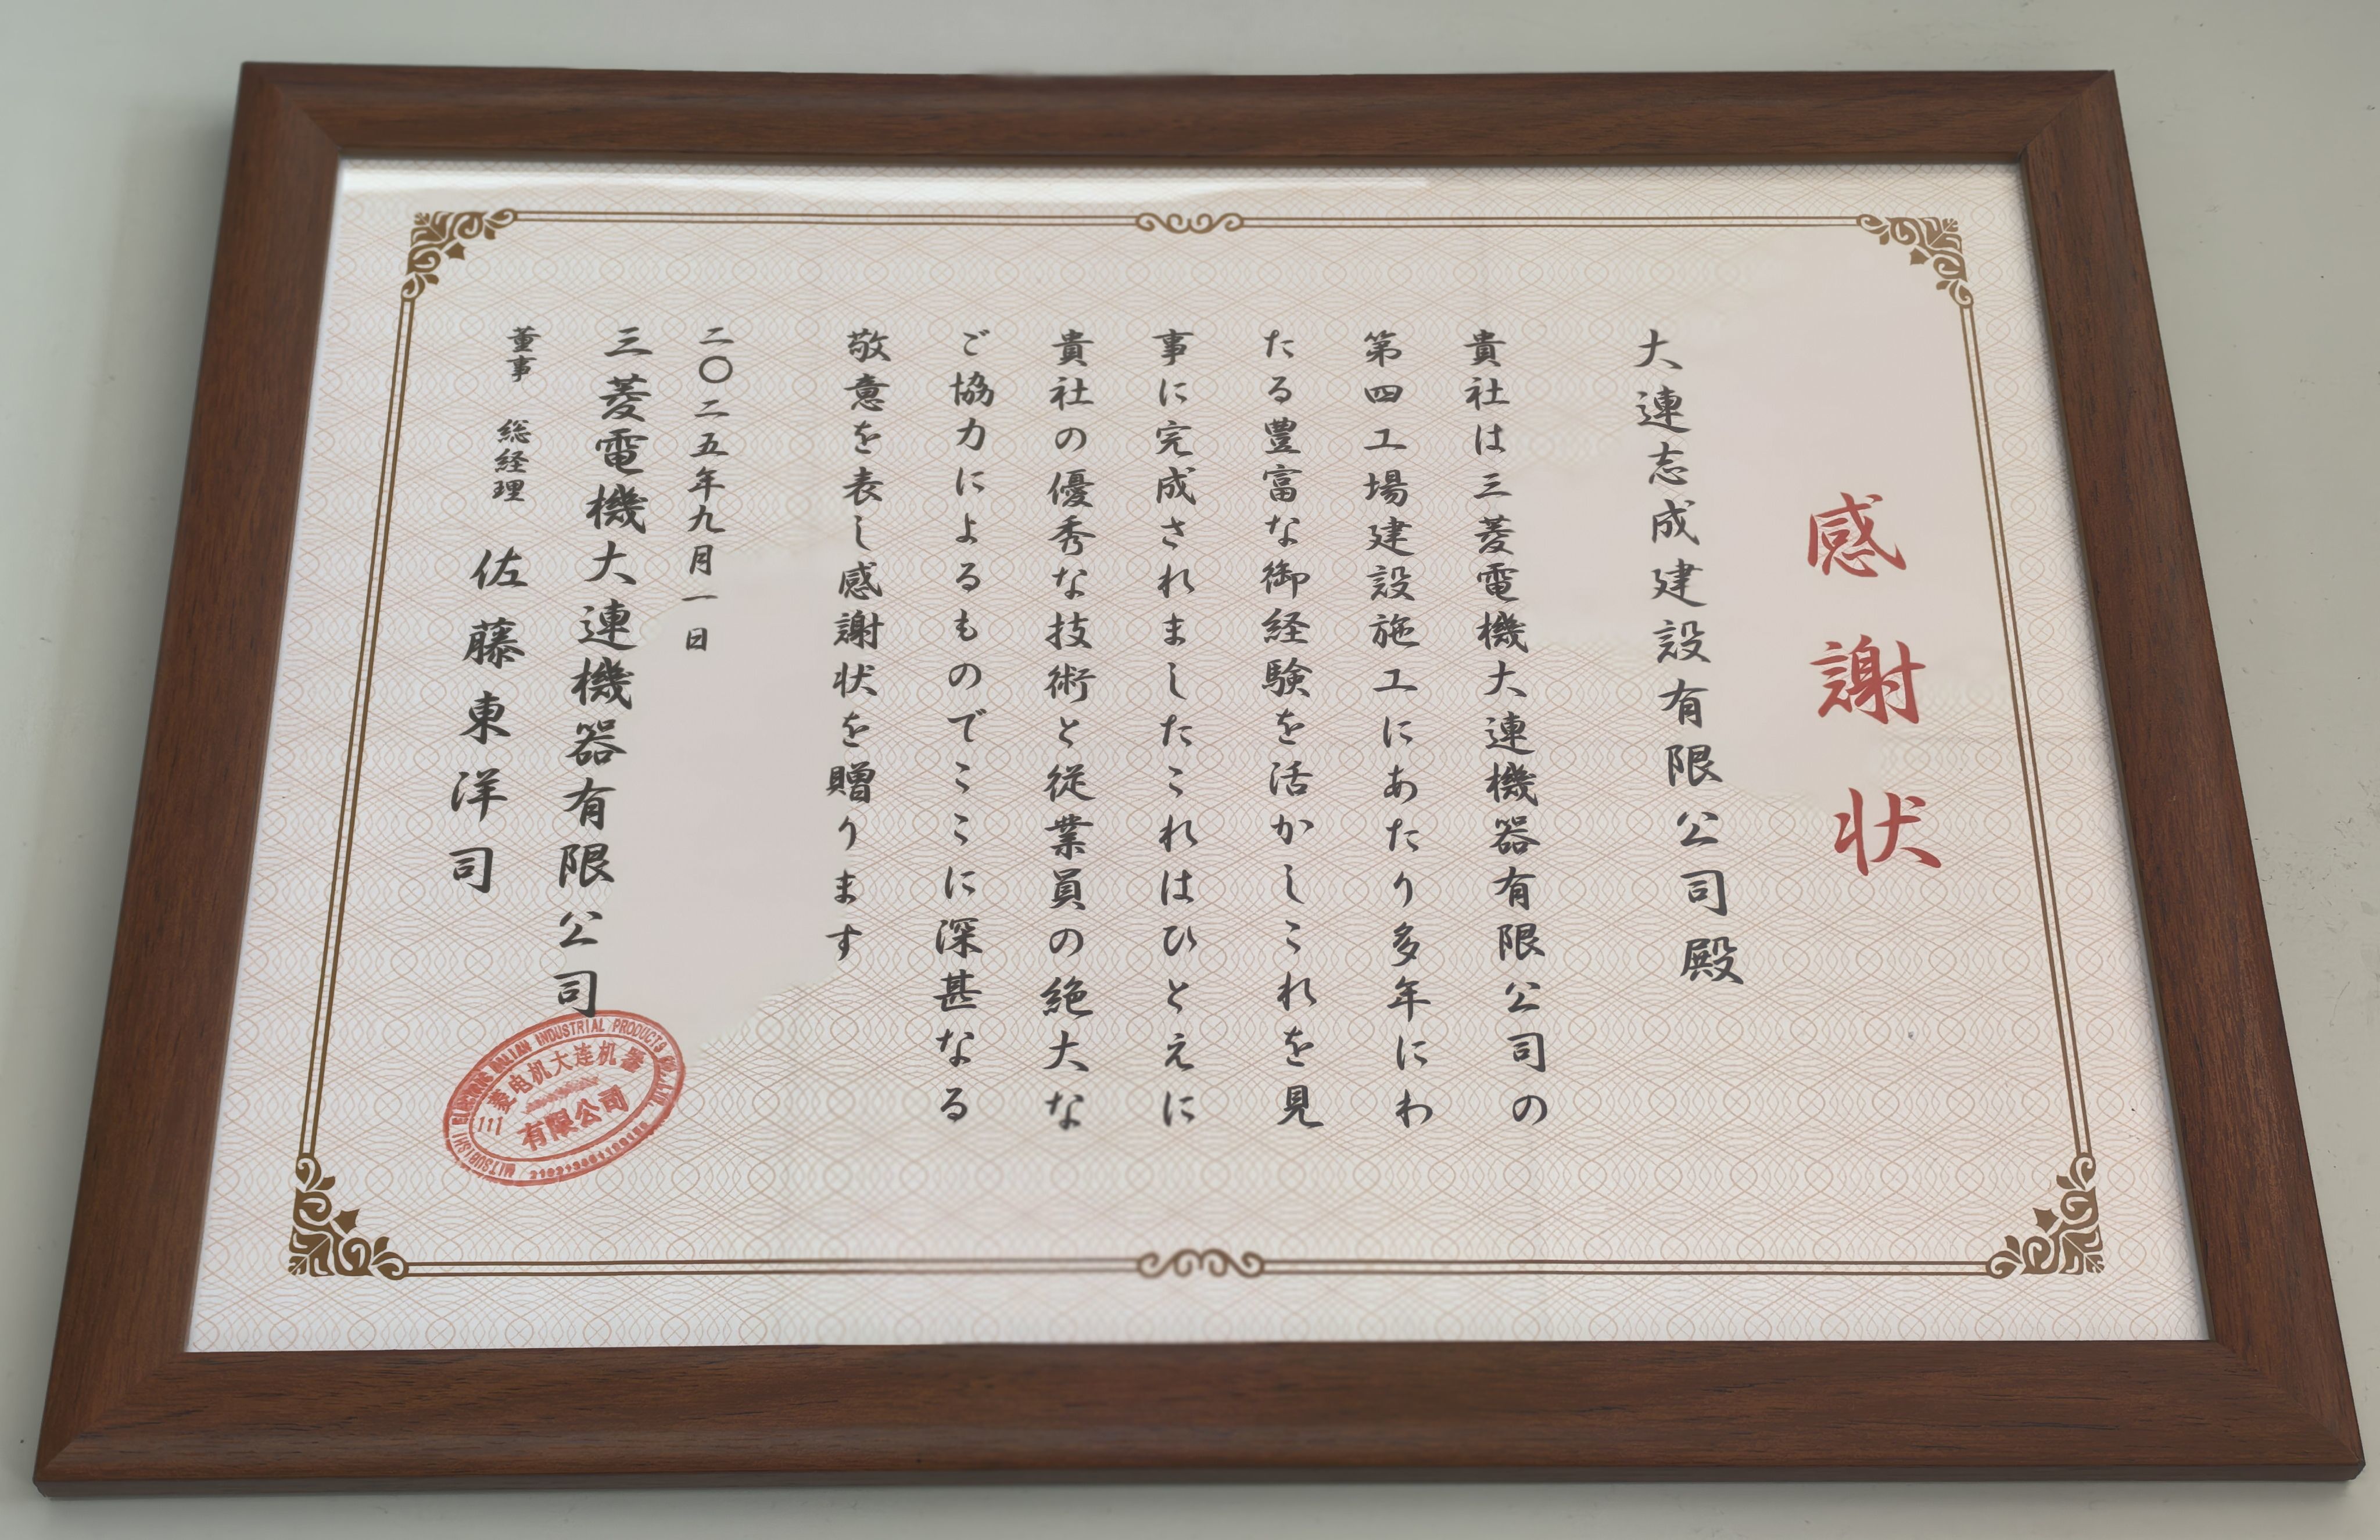 感謝状
大連志成建設有限公司殿
貴社は三菱電機大連機器有限公司の
第四工場建設施工にあたり多年にわ
たる豊富な御経験を活かしこれを見
事に完成されましたこれはひとえに
貴社の優秀な技術と従業員の絶大な
ご協力によるものでここに深甚なる
敬意を表し感謝状を贈ります
二〇二五年九月一日
三菱電機大連機器有限公司
董事 総経理 佐藤東洋司
MITSUBISHI ELECTRIC DALIAN INDUSTRIAL PRODUCTS CO.,LTD.
三菱电机大连机器
有限公司